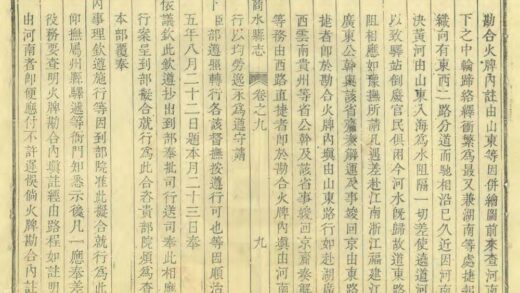 勘合火牌內註由山東等因併繪圖前來查河南
下之中輪蹄絡繹衝繁爲最又兼湖南等處捷報
鐵向有東西二路分道而馳相沿已久近因河南
決黃河由山東入海爲水阻隔一切差使遶道河
以致驛站倒廢官民俱困今河水旣歸故道東路
阻相應如豫撫所請凡遇差赴江南浙江福建江
廣東公幹與該省齎奏解運及事竣回京由東路
捷者卽於勘合火牌內塡由山東路行如赴湖廣
西雲南貴州等省公幹及該省事竣回京齎奏解
等務由西路直捷者卽於勘合火牌內塡由河南
行以均勞逸永爲遵守請
商水縣志 卷之九 九
下臣部遵照轉行各該督撫按遵行可也等因順治
五年八月二十二日題本月二十三日奉
依議欽此欽遵抄出到部奉批司行送司奉此相應
行案呈到部擬合就行爲此合咨貴部院煩爲查
本部覆奉
內事理欽遵施行等因到部院准此擬合就行爲此
仰撫屬州縣驛遞等衙門知悉示後凡一應奉差
役務要查明火牌勘合內塡註經由路程如註明
由河南者卽便應付不許遲悞倘火牌勘合內註